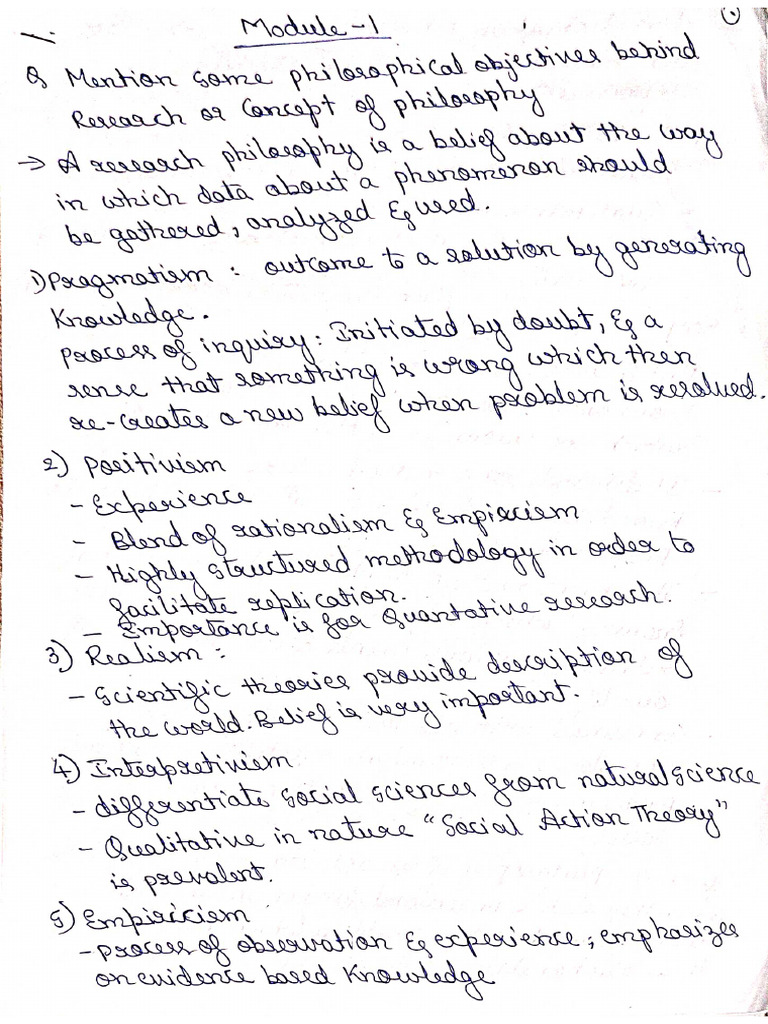 Module - 1
①
Q Mention some philosophical objectives behind
Research or Concept of philosophy
→ A research philosophy is a belief about the way
in which data about a phenomenon should
be gathered, analyzed & used.
1) Pragmatism : outcome to a solution by generating
Knowledge.
process of inquiry: Initiated by doubt, & a
sense that something is wrong which then
re-creates a new belief when problem is resolved.
2) Positivism
- Experience
- Blend of rationalism & Empiricism
- Highly structured methodology in order to
facilitate replication.
- Emportance is for Quantative research.
3) Realism :
- Scientific theories provide description of
the world. Belief is very important.
4) Interpretivism
- differentiate social sciences from natural science
- Qualitative in nature "Social Action Theory"
is prevalent.
5) Empiricism
- process of observation & experience; emphasizes
on evidence based Knowledge